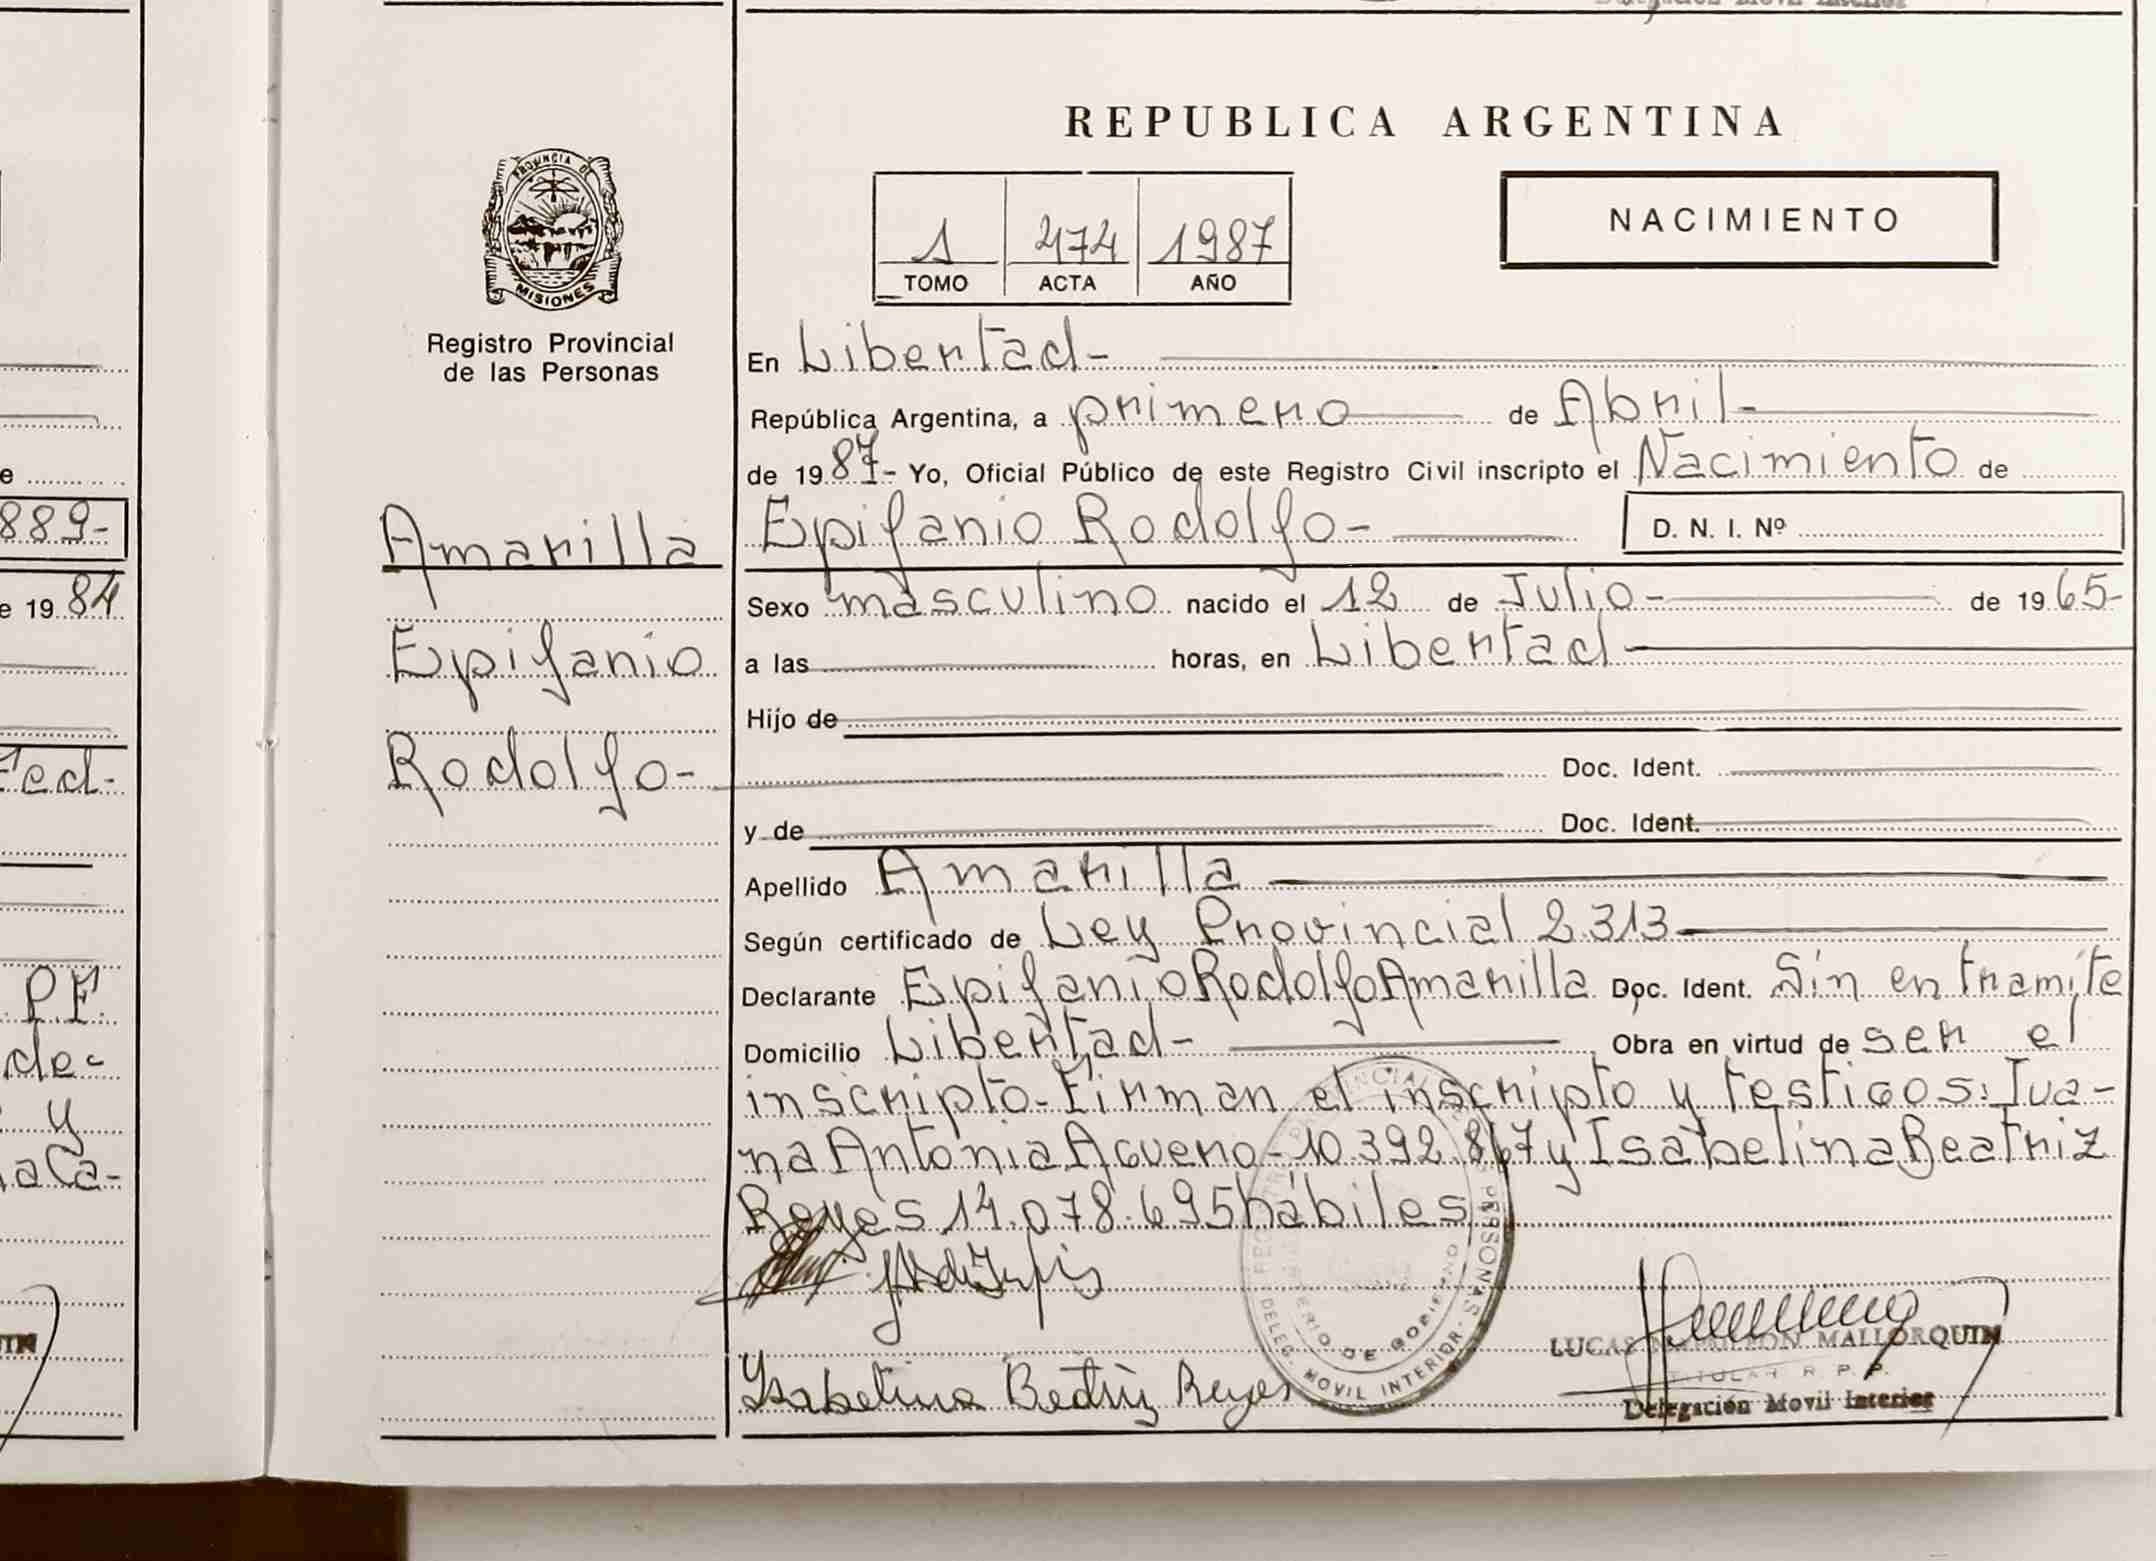 REPUBLICA ARGENTINA
PROVINCIA DE
MISIONES
Registro Provincial
de las Personas
1 474 1987
TOMO ACTA AÑO
NACIMIENTO
En Libertad-
República Argentina, a primero de Abril-
de 1987- Yo, Oficial Público de este Registro Civil inscripto el Nacimiento de
Amarilla
Epifanio Rodolfo- D. N. I. Nº
Sexo masculino nacido el 12 de Julio- de 1965-
Epifanio
a las horas, en Libertad-
Hijo de
Rodolfo-
Doc. Ident.
y de Doc. Ident.
Apellido Amarilla
Según certificado de Ley Provincial 2.313
Declarante Epifanio Rodolfo Amarilla Doc. Ident. Sin en tramite
Domicilio Libertad- Obra en virtud de ser el
inscripto-Firman el inscripto y testigos: Jua-
na Antonia Aguero-10.392.867 y Isabelina Beatriz
Reyes 14.078.695 hábiles
Isabelina Beatriz Reyes
LUCAS NAPOLEON MALLORQUIN
TITULAR R. P. P.
Delegación Movil Interior
PERSONAS
MINISTERIO DE GOBIERNO
DELEG. MOVIL INTERIOR
889-
e 1984
P.F.
de-
y
QUIN